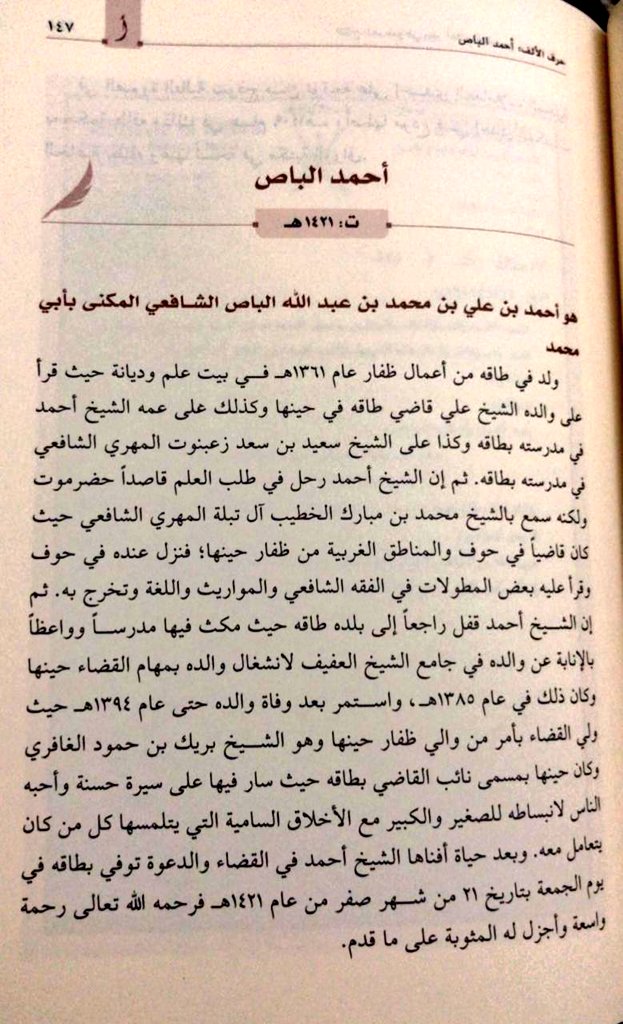 حرف الألف: أحمد الباص
أ
١٤٧
أحمد الباص
ت: ١٤٢١هـ
هو أحمد بن علي بن محمد بن عبد الله الباص الشافعي المكنى بأبي
محمد
ولد في طاقه من أعمال ظفار عام ١٣٦١هـ في بيت علم وديانة حيث قرأ
على والده الشيخ علي قاضي طاقه في حينها وكذلك على عمه الشيخ أحمد
في مدرسته بطاقه وكذا على الشيخ سعيد بن سعد زعبنوت المهري الشافعي
في مدرسته بطاقه. ثم إن الشيخ أحمد رحل في طلب العلم قاصداً حضرموت
ولكنه سمع بالشيخ محمد بن مبارك الخطيب آل تبلة المهري الشافعي حيث
كان قاضياً في حوف والمناطق الغربية من ظفار حينها؛ فنزل عنده في حوف
وقرأ عليه بعض المطولات في الفقه الشافعي والمواريث واللغة وتخرج به. ثم
إن الشيخ أحمد قفل راجعاً إلى بلده طاقه حيث مكث فيها مدرساً وواعظاً
بالإنابة عن والده في جامع الشيخ العفيف لانشغال والده بمهام القضاء حينها
وكان ذلك في عام ١٣٨٥هـ، واستمر بعد وفاة والده حتى عام ١٣٩٤هـ حيث
ولي القضاء بأمر من والي ظفار حينها وهو الشيخ بريك بن حمود الغافري
وكان حينها بمسمى نائب القاضي بطاقه حيث سار فيها على سيرة حسنة وأحبه
الناس لانبساطه للصغير والكبير مع الأخلاق السامية التي يتلمسها كل من كان
يتعامل معه. وبعد حياة أفناها الشيخ أحمد في القضاء والدعوة توفي بطاقه في
يوم الجمعة بتاريخ ٢١ من شهر صفر من عام ١٤٢١هـ فرحمه الله تعالى رحمة
واسعة وأجزل له المثوبة على ما قدم.